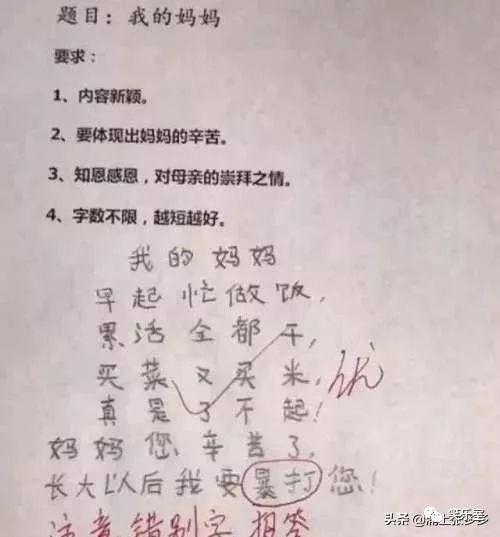 题目：我的妈妈
要求：
1、内容新颖。
2、要体现出妈妈的辛苦。
3、知恩感恩，对母亲的崇拜之情。
4、字数不限，越短越好。
我的妈妈
早起忙做饭，
累活全都干，
买菜又买米，
优
真是了不起！
妈妈您辛苦了，
长大以后我要暴打您！
注意错别字
头条